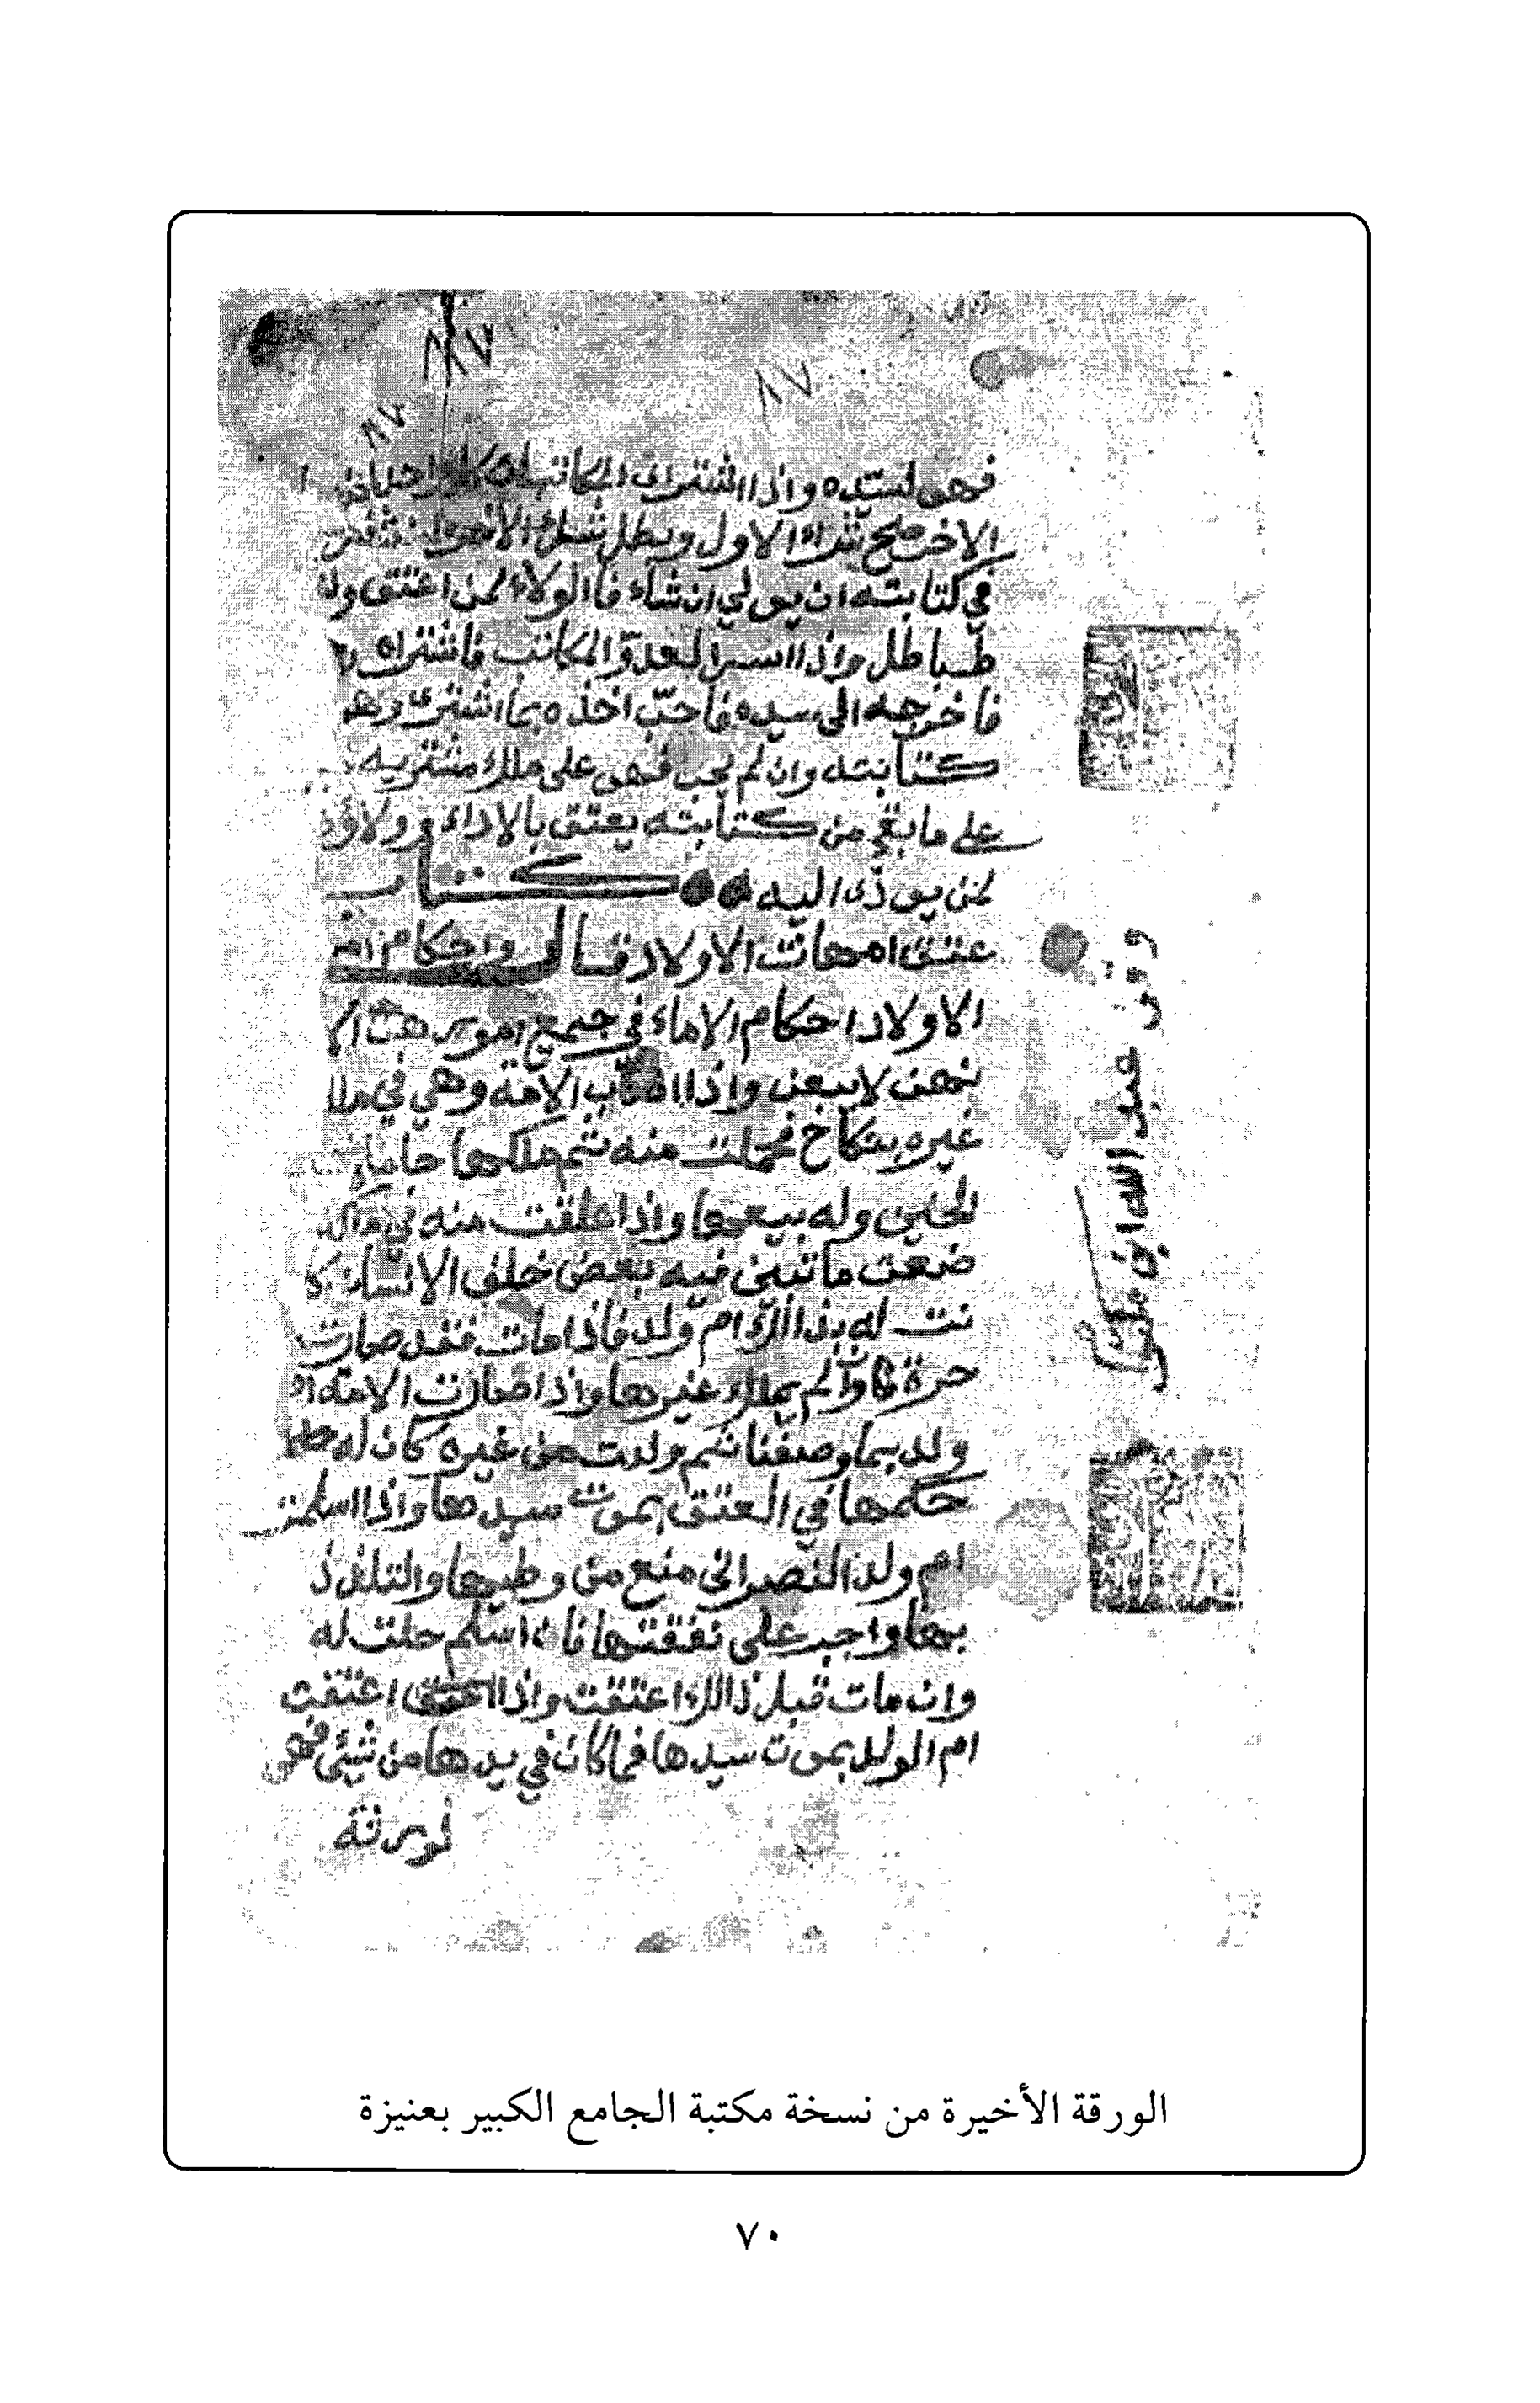 ٨٧
٨٧
٨٧
فهو لسيده واذا اشترى المكاتبان كل واحد
الاخر صح شراء الاول وبطل شراء الاخر
في كتابته ان يوالي انشاء فالولاء لمن اعتق
ط باطل واذا اسر العدو المكاتب فاشتراه
فاخرجه الى سيده فاحب اخذه بما اشترى
كتابته وان لم يحب فهو على ملك مشتريه
على ما بقي من كتابته يعتق بالاداء وولاؤه
لمن يودى اليه كتاب
عتق امهات الاولاد قال واحكام امهـ
الاولاد احكام الاماء في جميع امورهن الا
نهن لا يبعن واذا اصاب الامة وهي في ملك
غيره بنكاح فحملت منه ثم ملكها حاملا
الجنين وله بيعها واذا علقت منه في ملكه
ضعت ما تبين فيه بعض خلق الانسان كا
نت له بذالك ام ولد فاذا مات فقد صارت
حرة وان لم يملك غيرها واذا صارت الامة ام
ولد بما وصفنا ثم ولدت من غيره كان له
حكمها في العتق بموت سيدها واذا اسلمت
ام ولد النصراني منع من وطيها والتلذذ
بها واجبر على نفقتها فان اسلم حلت له
وان مات قبل ذالك اعتقت واذا اعتقت
ام الولد بموت سيدها فما كان في يدها من شيئ فهو
لورثة
وقف عبد الله ابن
الورقة الأخيرة من نسخة مكتبة الجامع الكبير بعنيزة
٧٠